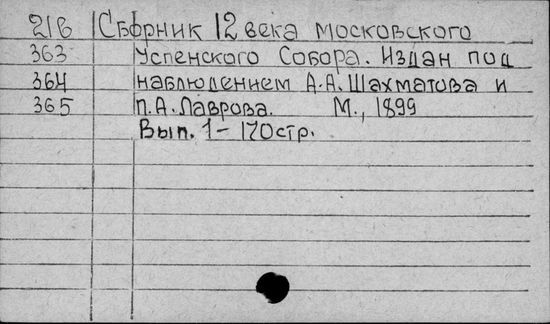 21в Сборник 12 века московского
363 Успенского Собора. Издан под
364 наблюдением А.А. Шахматова и
365 П.А. Лаврова. М., 1899
Вып. 1 - 170стр.